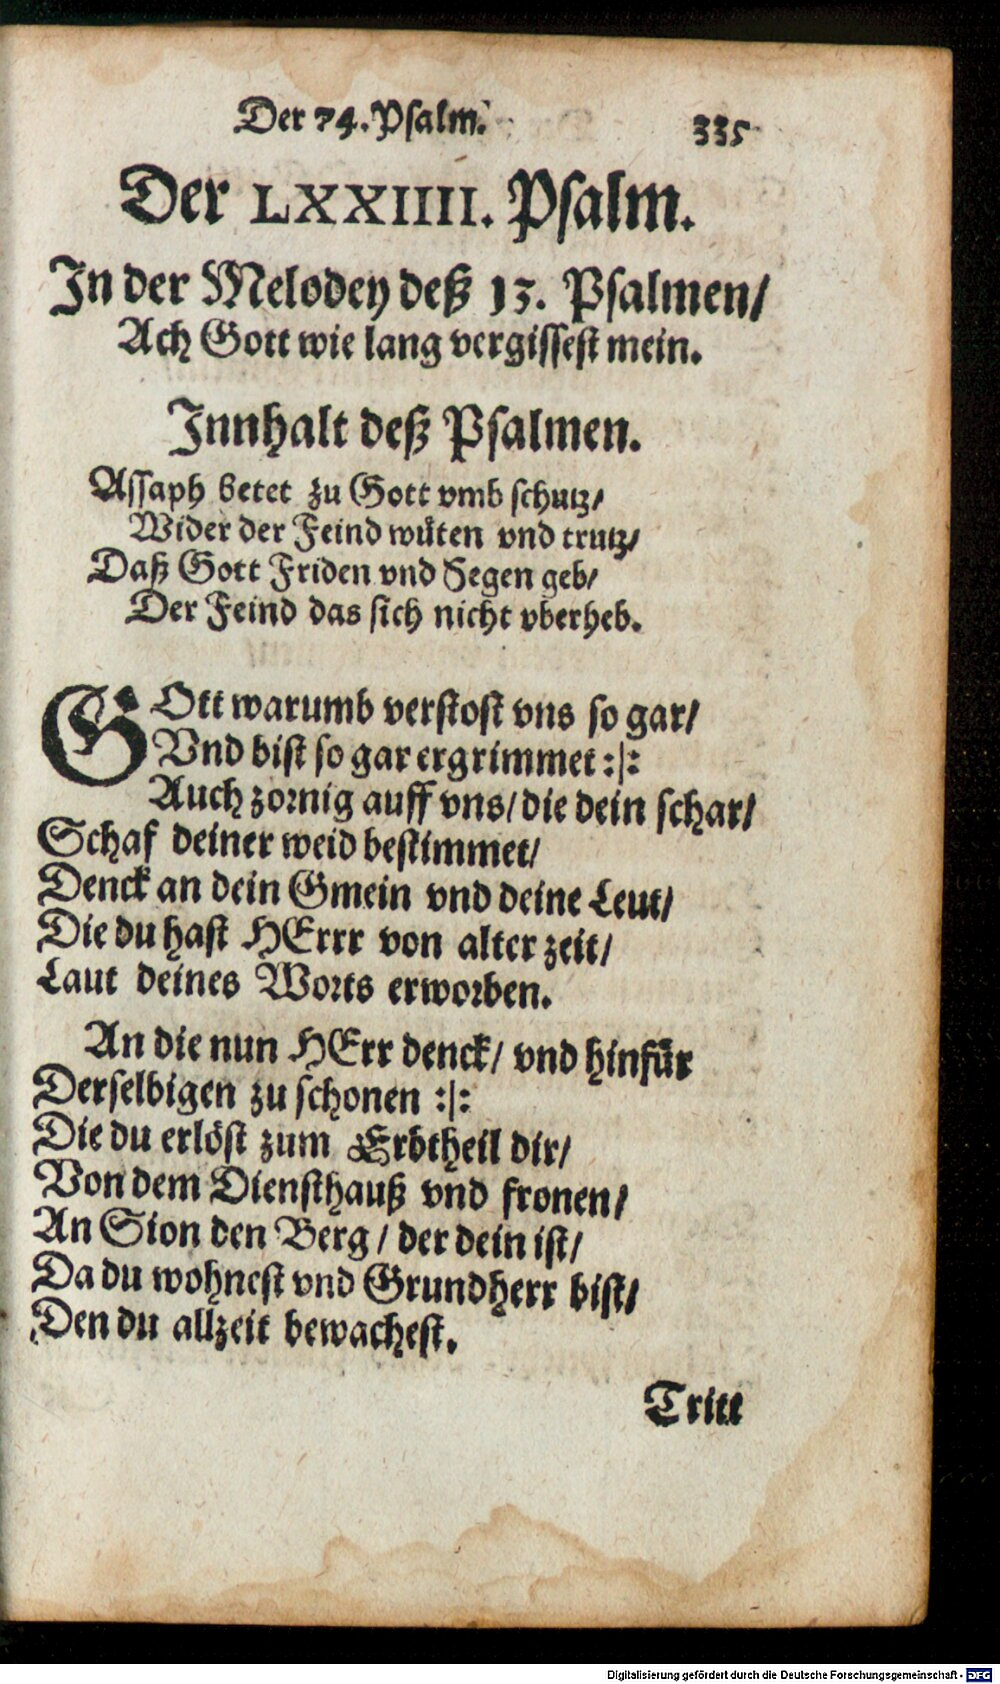 Der 74. Psalm.
335
Der LXXIIII. Psalm.
In der Melodey deß 13. Psalmen/
Ach Gott wie lang vergissest mein.
Innhalt deß Psalmen.
Assaph betet zu Gott vmb schutz/
Wider der Feind wüten vnd trutz/
Daß Gott Friden vnd Segen geb/
Der Feind das sich nicht vberheb.
GOtt warumb verstost vns so gar/
Vnd bist so gar ergrimmet :|:
Auch zornig auff vns/ die dein schar/
Schaf deiner weid bestimmet/
Denck an dein Gmein vnd deine Leut/
Die du hast HErrr von alter zeit/
Laut deines Worts erworben.
An die nun HErr denck/ vnd hinfür
Derselbigen zu schonen :|:
Die du erlöst zum Erbtheil dir/
Von dem Diensthauß vnd fronen/
An Sion den Berg/ der dein ist/
Da du wohnest vnd Grundherr bist/
Den du allzeit bewachest.
Tritt
Digitalisierung gefördert durch die Deutsche Forschungsgemeinschaft - DFG